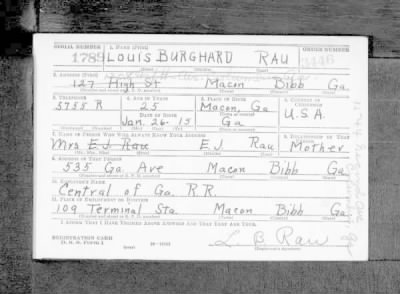 SERIAL NUMBER 1. NAME (Print) ORDER NUMBER
1789 LOUIS BURGHARD RAU 3445
2. ADDRESS (Print)
127 High St Macon Bibb Ga.
3. TELEPHONE 4. AGE IN YEARS 5. PLACE OF BIRTH 6. COUNTRY OF CITIZENSHIP
5755 R 25 Macon, Ga
DATE OF BIRTH U.S.A.
Jan. 26. 15 Ga
7. NAME OF PERSON WHO WILL ALWAYS KNOW YOUR ADDRESS 8. RELATIONSHIP OF THAT PERSON
Mrs E J Rau E J Rau Mother
9. ADDRESS OF THAT PERSON
535 Ga Ave Macon Bibb Ga
10. EMPLOYER'S NAME
Central of Ga. R.R.
11. PLACE OF EMPLOYMENT OR BUSINESS
109 Terminal Sta. Macon Bibb Ga
I AFFIRM THAT I HAVE VERIFIED ABOVE ANSWERS AND THAT THEY ARE TRUE.
REGISTRATION CARD
D. S. S. FORM 1 L. B. Rau